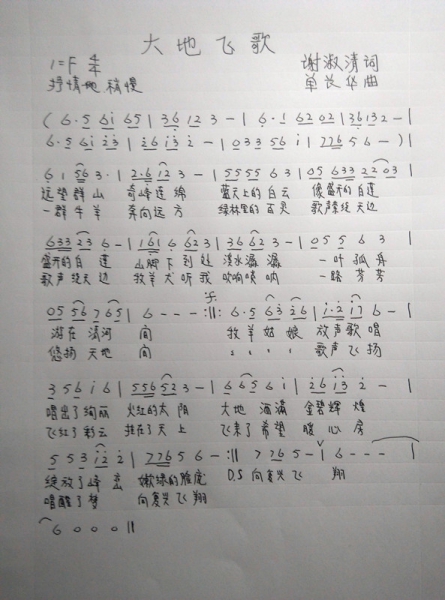 大地飞歌
1=F 4/4 谢淑清词
抒情地 稍慢 单长华曲
( 6·5 6i 65 | 36 12 3 - | 6·1 62 02 | 36 132 - |
6·5 6i 23 | 26 13 2 - | 033 56 i | 7765 6 - ) |
6 1 56 3· | 2·6 12 3 - | 5555 6 3 | 05 633 22 03 |
远望群山 奇峰连绵 蓝天上的白云 像盛开的白莲
一群牛羊 奔向远方 绿林里的百灵 歌声绕天边
633 23 6 - | 161 6 62 3 | 36 62 3 - | 05 5 6 3 |
盛开的白莲 山脚下到处 溪水潺潺 一叶孤舟
歌声绕天边 牧羊犬听我 吹响唢呐 一路芳芳
05 56 765 | 6 - - - :||: 6·5 63 26 | i·2 i7 6 - |
游在清河间 牧羊姑娘 放声歌唱
悠扬天地间 歌声飞扬
3 5 6 i 6 | 556 52 3 - | 6 65 6 i | 26 i3 2 - |
唱出了绚丽 火红的太阳 大地洒满 金碧辉煌
飞红了彩云 挂在了天上 飞来了希望 暖心房
5 5 3 i2 2 | 7765 6 - :|| 7 765 - | 6 - - - |
绽放了峰峦 嫩绿的雅庞 D.S 向复兴飞翔
唱醒了梦 向复兴飞翔
6 0 0 0 ||